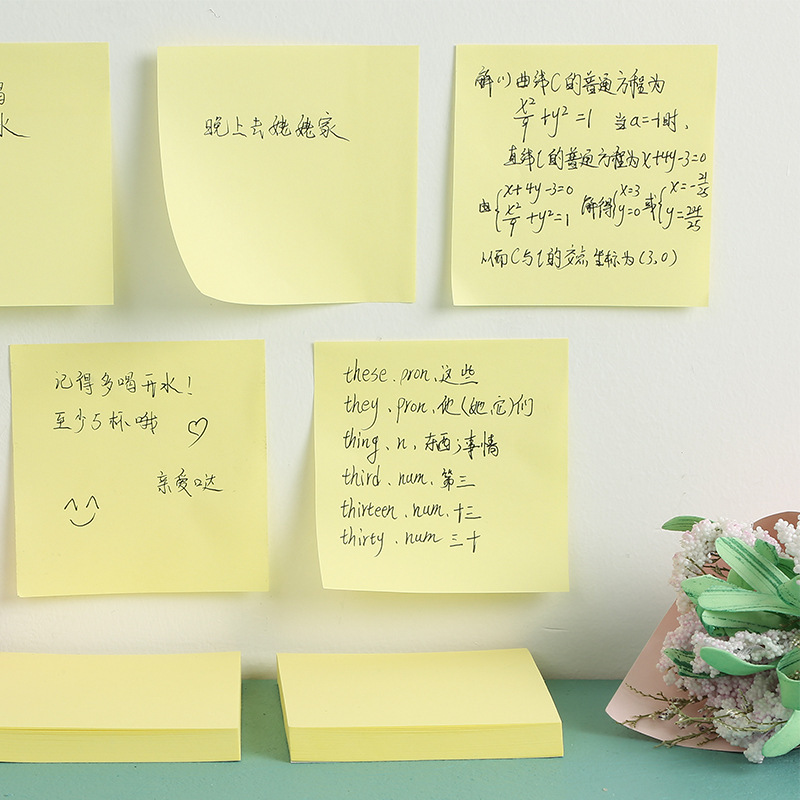 水
晚上去姥姥家
解(1)曲线C的普通方程为
x²/9+y²=1 当a=-1时,
直线l的普通方程为x+4y-3=0
由{x+4y-3=0 x²/9+y²=1 解得{x=3 y=0 或{x=-21/25 y=24/25
从而C与l的交点坐标为(3,0)
记得多喝开水!
至少5杯哦
亲爱哒
these.pron.这些
they.pron.他(她,它)们
thing.n.东西;事情
third.num.第三
thirteen.num.十三
thirty.num 三十